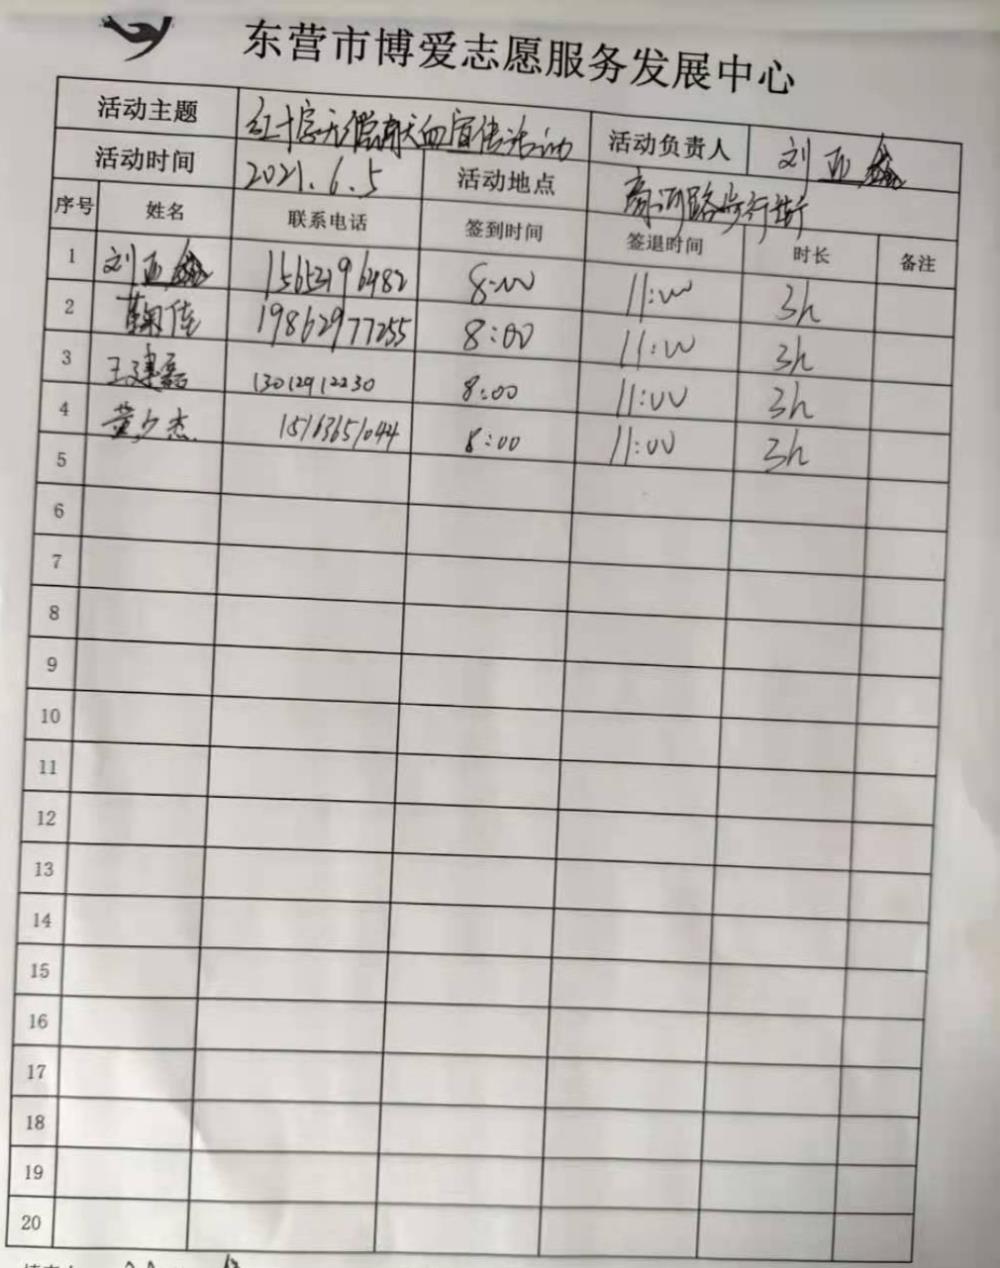 东营市博爱志愿服务发展中心
活动主题 红十字无偿献血宣传活动 活动负责人 刘亚鑫
活动时间 2021.6.5 活动地点 黄河路步行街
序号 姓名 联系电话 签到时间 签退时间 时长 备注
1 刘亚鑫 8:00 11:00 3h
2 鞠佳 19862977255 8:00 11:00 3h
3 王建磊 13012912230 8:00 11:00 3h
4 黄少杰 15163651044 8:00 11:00 3h
5
6
7
8
9
10
11
12
13
14
15
16
17
18
19
20